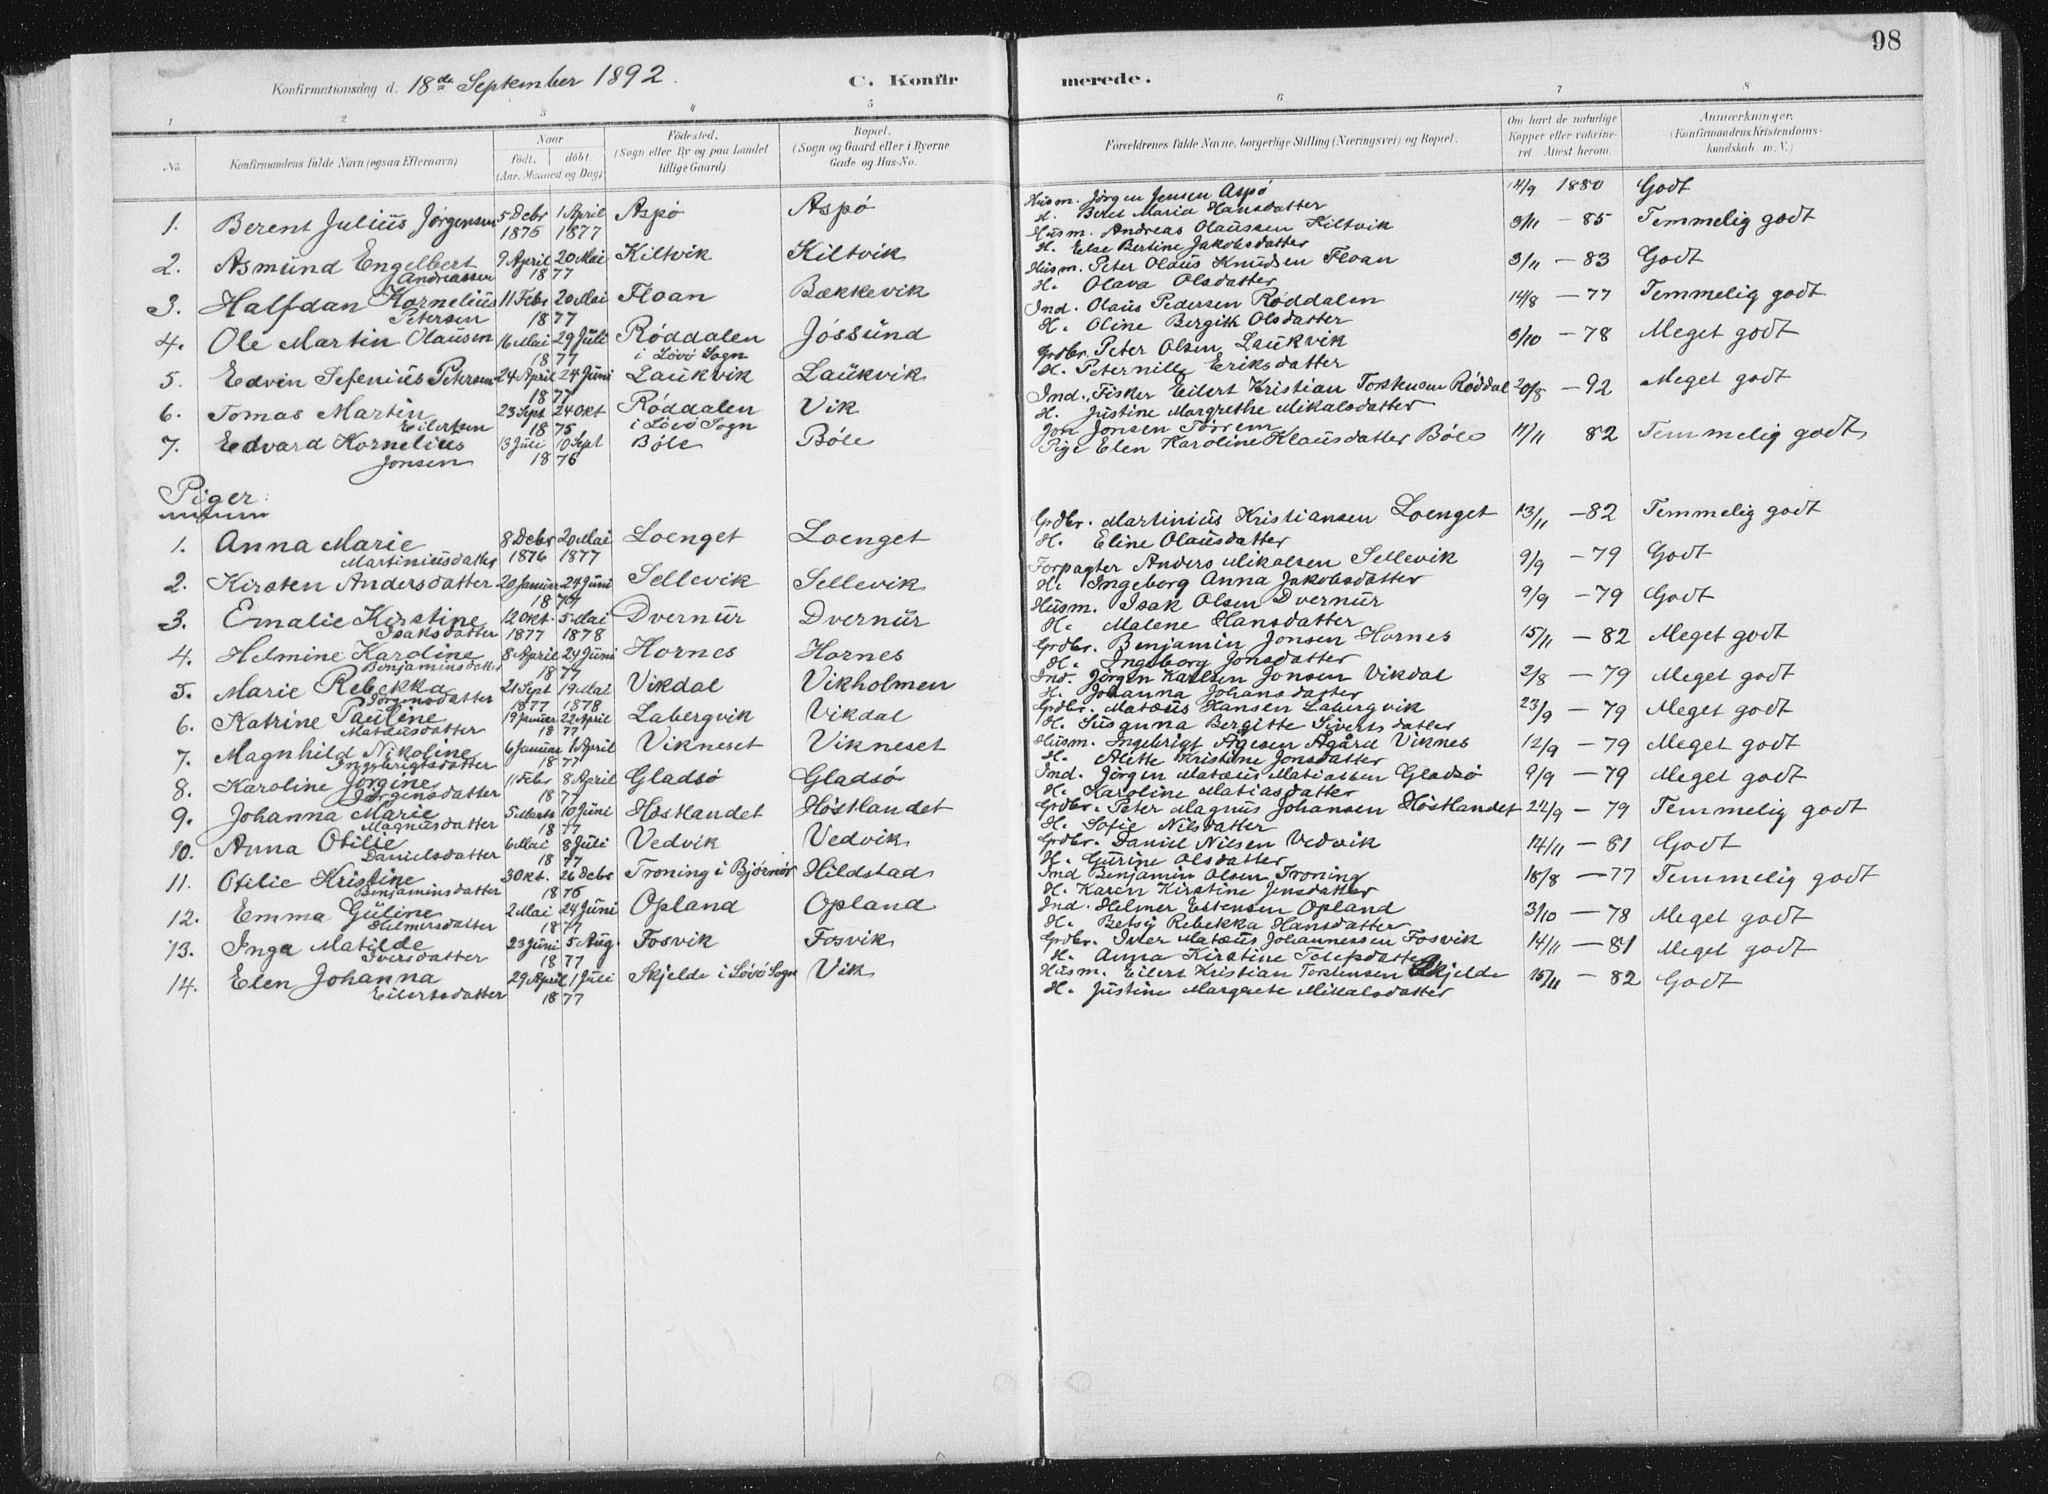 98
Konfirmationsdag d. 18de September 1892.
C. Konfirmerede.
1 2 3 4 5 6 7 8
No.
Konfirmandens fulde Navn (ogsaa Efternavn)
Naar
født. døbt.
(Aar, Maaned og Dag)
Fødested.
(Sogn eller By og paa Landet
tillige Gaard)
Bopæl.
(Sogn og Gaard eller i Byerne
Gade og Hus-No.
Forældrenes fulde Navne, borgerlige Stilling (Næringsvei) og Bopæl.
Om havt de naturlige
Kopper eller vaccineret. Attest herom.
Anmærkninger.
(Konfirmandens Kristendomskundskab m. V.)
1. Berent Julius Jørgensen 5 Debr 1876 1 April 1877 Aspø Aspø Husm. Jørgen Jensen Aspø
H. Beret Maria Hansdatter 14/9 1880 Godt
2. Asmund Engelbert Andreassen 9 April 20 Mai 1877 Kiltvik Kiltvik Husm. Andreas Olaussen Kiltvik
H. Else Bertine Jakobsdatter 3/11 - 85 Temmelig godt
3. Halfdan Kornelius Petersen 11 Febr 20 Mai 1877 Floan Bækkevik Husm. Peter Olaus Knudsen Floan
H. Olava Olsdatter 3/11 - 83 Godt
4. Ole Martin Olausen 16 Mai 29 Juli 1877 Røddalen i Løvø Sogn Jøssund Ind. Olaus Pedersen Røddalen
H. Oline Bergith Olsdatter 14/8 - 77 Temmelig godt
5. Edvin Sefenius Petersen 24 April 24 Juni 1877 Laukvik Laukvik Grdbr. Peter Olsen Laukvik
H. Peternille Eriksdatter 3/10 - 78 Meget godt
6. Tomas Martin Eilertsen 23 Sept 24 Okt 1875 Røddalen i Løvø Sogn Vik Ind., Fisker Eilert Kristian Torstensen Røddal
H. Justine Margrethe Mikalsdatter 20/8 - 92 Meget godt
7. Edvard Kornelius Jonsen 13 Juli 10 Sept 1876 Bøle Bøle Jon Jonsen Tørrem
Pige Elen Karoline Klausdatter Bøle 11/11 82 Temmelig godt
Piger:
1. Anna Marie Martiniusdatter 8 Debr 1876 20 Mai 1877 Loenget Loenget Grdbr. Martinius Kristiansen Loenget
H. Eline Olausdatter 13/11 - 82 Temmelig godt
2. Kirsten Andersdatter 20 Januar 24 Juni 1877 Sellevik Sellevik Forpagter Anders Mikalsen Sellevik
H. Ingeborg Anna Jakobsdatter 9/9 - 79 Godt
3. Emalie Kirstine Isaksdatter 12 Okt. 1877 5 Mai 1878 Dvernur Dvernur Husm. Isak Olsen Dvernur
H. Malene Hansdatter 9/9 - 79 Godt
4. Helmine Karoline Benjaminsdatter 8 April 24 Juni 1877 Hornes Hornes Grdbr. Benjamin Jonsen Hornes
H. Ingeborg Jonsdatter 15/11 - 82 Meget godt
5. Marie Rebekka Jørgensdatter 21 Sept 1877 19 Mai 1878 Vikdal Vikholmen Ind. Jørgen Karlsen Jonsen Vikdal
H. Johanna Johansdatter 2/8 - 79 Meget godt
6. Katrine Pauline Mataüsdatter 19 Januar 22 April 1877 Labergvik Vikdal Grdbr. Matæus Hansen Labergvik
H. Susanna Bergitte Sivertsdatter 23/9 - 79 Meget godt
7. Magnhild Nikoline Ingebrigtsdatter 6 Januar 1 April 1877 Vikneset Vikneset Husm. Ingebrigt Agesen Agård Viknes
H. Alette Kristine Jonsdatter 12/9 - 79 Meget godt
8. Karoline Jørgine Jørgensdatter 11 Febr 8 April 1877 Gladsø Gladsø Ind. Jørgen Matæus Matiassen Gladsø
H. Karoline Matiasdatter 9/9 - 79 Meget godt
9. Johanna Marie Magnusdatter 5 Marts 10 Juni 1877 Høstlandet Høstlandet Grdbr. Peter Magnus Johansen Høstlandet
H. Sofie Nilsdatter 22/9 - 79 Temmelig godt
10. Anna Otilie Danielsdatter 6 Mai 8 Juli 1877 Vedvik Vedvik Grdbr. Daniel Nilsen Vedvik
H. Gurine Olsdatter 14/11 - 81 Godt
11. Otilie Kristine Benjaminsdatter 3 Okt. 26 Debr 1876 Troning i Bjørnør Hildstad Ind Benjamin Olsen Troning
H. Karen Kirstine Jensdatter 18/8 - 77 Temmelig godt
12. Emma Guline Helmersdatter 2 Mai 24 Juni 1877 Opland Opland Ind. Helmer Estensen Opland
H. Betsy Rebekka Hansdatter 3/10 - 78 Meget godt
13. Inga Matilde Iversdatter 23 Juni 5 Aug. 1877 Fosvik Fosvik Grdbr. Iver Matæus Johannessen Fosvik
H. Anna Kirstine Tolefsdatter 14/11 - 81 Meget godt
14. Elen Johanna Eilertsdatter 29 April 1 Juli 1877 Skjelde i Løvø Sogn Vik Husm. Eilert Kristian Torstensen Skjelde
H. Justine Margrete Mikalsdatter 15/11 - 82 Godt